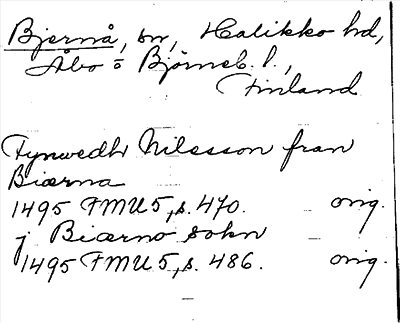 Bjernå, sn, Halikko hd,
Åbo o Björneb. l.,
Finland
Fynwedh Nilsson fran
Biærna
1495 FMU 5, s. 470. orig.
j Biærno sokn
1495 FMU 5, s. 486. orig.